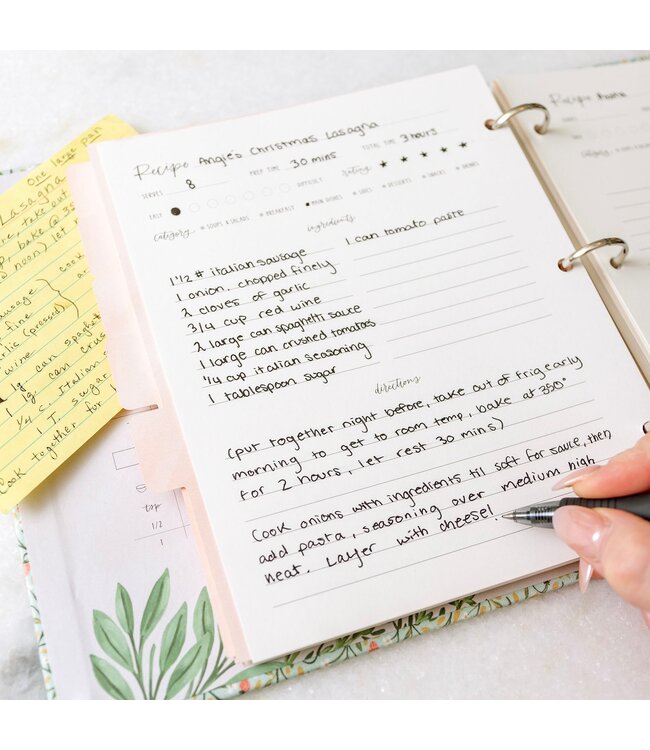 One large pan
Lasagna
take out
bake @ 35
noon) let
sausage
fine
(pressed)
wine
lg can spaghet
1 lg can crus
1/4 c. Italian
1 T. sugar
Cook together for
cook
top
1/2
1
Recipe Angie's Christmas Lasagna
SERVES 8 PREP TIME 30 mins TOTAL TIME 3 hours
EASY DIFFICULT rating ★ ★ ★ ★ ★
category SOUPS & SALADS BREAKFAST MAIN DISHES SIDES DESSERTS SNACKS DRINKS
ingredients
1 1/2 # italian sausage
1 onion, chopped finely
2 cloves of garlic
3/4 cup red wine
2 large can spaghetti sauce
1 large can crushed tomatoes
1/4 cup italian seasoning
1 tablespoon sugar
1 can tomato paste
directions
(put together night before, take out of frig early
morning to get to room temp, bake at 350°
for 2 hours, let rest 30 mins)
Cook onions with ingredients til soft for sauce, then
add pasta, seasoning over medium high
heat. Layer with cheese!
Recipe
SERVES
EASY
category